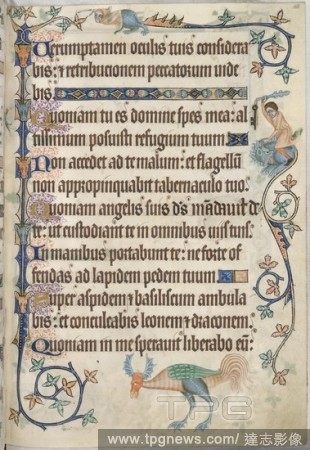 Verumptamen oculis tuis considera
bis: et retribucionem peccatorum uide
bis.
Quoniam tu es domine spes mea: al
tissimum posuisti refugium tuum
Non accedet ad te malum: et flagellū
non appropinquabit tabernaculo tuo.
Quoniam angelis suis ds mandauit de
te: ut custodiant te in omnibus uiis tuis.
In manibus portabunt te: ne forte of
fendas ad lapidem pedem tuum
Super aspidem et basiliscum ambula
bis: et conculcabis leonem et draconem.
Quoniam in me sperauit liberabo eū:
TPG
www.tpgnews.com/達志影像